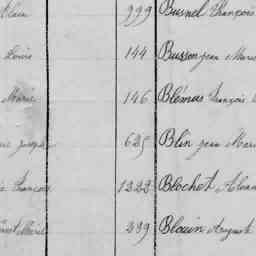 Alain 999 Busnel François
Louis 144 Busson jean Marie
Marie 146 Blémus François
Joseph 625 Blin jean Marie
François 1222 Blochet
Marie 239 Blouin Auguste